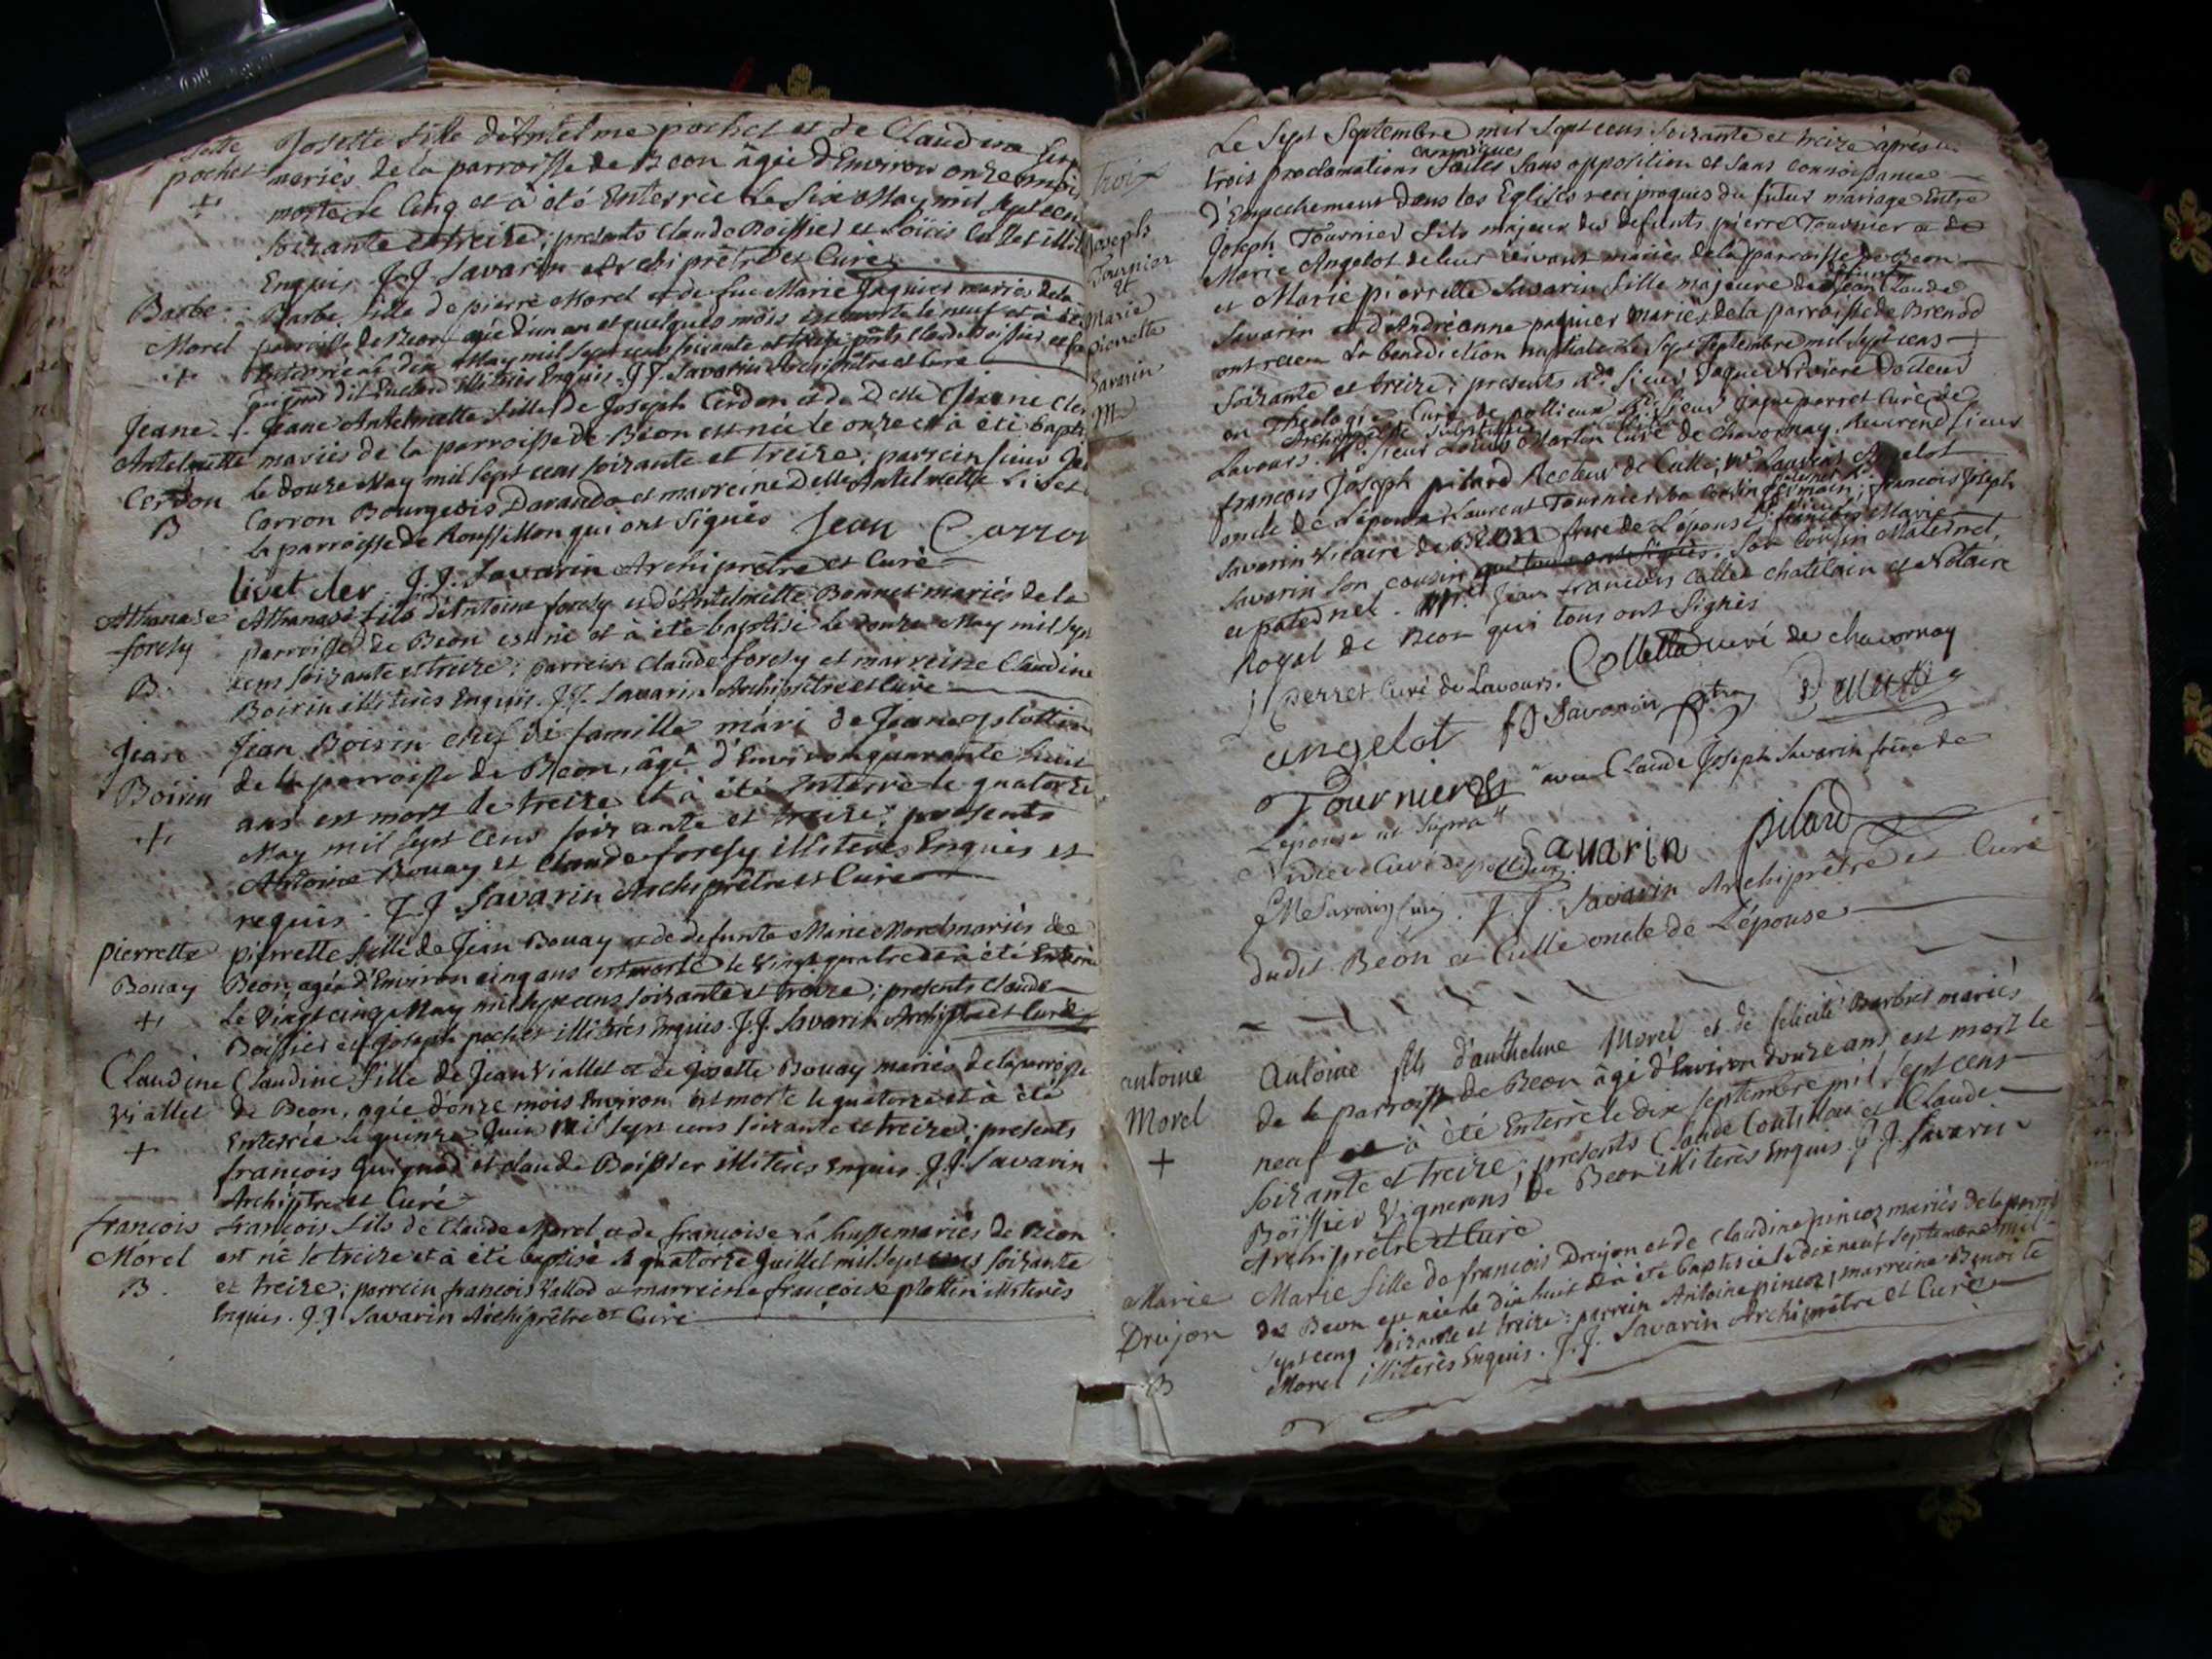 Josette fille d'Antelme pochet et de Claudine
pochet mariés de la parroisse de Beon âgée d'Environ onze mois
+ morte le cinq et à été Enterrée le six May mil sept cens
soixante et treize; presents Claude Boissier et Loüis Collet illit
Enquis. J.J. Savarin Archiprêtre et Curé
Barbe Barbe fille de pierre Morel et de feue Marie Juquier mariés de la
Morel parroisse de Beon, agée d'un an et quelques mois est morte le neuf et à été
+ Enterrée le dix May mil sept cens soixante et treize pnts Claude Boissier et
dit illiterés Enquis. J.J. Savarin Archiprêtre et Curé
Jeane Jeane Antelmette fille de Joseph Cerdon et de Delle Jeane Cler
Antelmette mariés de la parroisse de Béon est née le onze et à été bapti
Cerdon le douze May mil sept cens soixante et treize; parrein sieur Jea
B Carron Bourgeois Darando et marreine Delle Antelmette Livet
la parroisse de Roussillon qui ont signés Jean Carron
livet cler J.J. Savarin Archiprêtre et Curé
Athanase Athanase fils d'Antoine foresy et d'Antelmette Bonnet mariés de la
foresy parroisse de Beon est né et à été baptisé le douze May mil sept
B. cens soixante et treize; parrein Claude foresy et marreine Claudine
Boirin illiterés Enquis. J.J. Savarin Archiprêtre et Curé
Jean Jean Boirin chef de famille mari de Jeane plottin
Boirin de la parroisse de Beon, âgé d'Environ quarante huit
+ ans est mort le treize et à été Enterré le quatorze
May mil sept cens soixante et treize; presents
Antoine Bouay et Claude foresy illiterés Enquis et
requis. J.J. Savarin Archiprêtre et Curé
pierrette pierrette fille de Jean Bouay et de defunte Marie Morel mariés de
Bouay Beon, agée d'Environ cinq ans est morte le vingt quatre et à été Enterrée
+ le vingt cinq May mil sept cens soixante et treize; presents Claude
Boissier et Joseph pochet illiterés Enquis. J.J. Savarin Archiptre et Curé
Claudine Claudine fille de Jean Viallet et de Josette Bouay mariés de la parroisse
Viallet de Beon, agée d'onze mois Environ est morte le quatorze et à été
+ Enterrée le quinze Juin mil sept cens soixante et treize; presents
françois Guignod et Claude Boissier illiterés Enquis. J.J. Savarin
Archiptre et Curé
francois francois fils de Claude Morel et de francoise La sausse mariés de Beon
Morel est né le treize et à été baptisé le quatorze Juillet mil sept cens soixante
B. et treize; parrein francois Vallod et marreine françoise plottin illiterés
Enquis. J.J. Savarin Archiprêtre et Curé
Le Sept Septembre mil sept cens soixante et treize après
trois proclamations canoniques faites sans opposition et sans connoissance
d'Empechement dans les Eglises reciproques du futur mariage Entre
Joseph Joseph Tournier fils majeur des defunts pierre Tournier et de
Tournier Marie Angelot de leur vivant mariés de la parroisse de Beon
et et Marie pierrette Savarin fille majeure de defunt Jean Claude
Marie Savarin et d'Andréanne paquier mariés de la parroisse de Brenod
pierrette ont recu la benediction nuptiale le sept Septembre mil sept cens
Savarin soixante et treize; presents Rd sieur Jaque Nivière Docteur
M en Theologie Curé de pollieux Archiprêtre substitué Rd sieur Jaque perret Curé de
Lavours. Rd sieur Loüis Marton Curé de Chavornay, Reverend sieur
francois Joseph pilard Recteur de Culle; Me Laurent Angelot
oncle de l'époux; Laurent Tournier son cousin Germain; francois Joseph
Savarin Vicaire de Béon frere de l'épouse francois Marie
Savarin son cousin qui tous ont signés. son cousin Maternel,
et paternel. Me Jean francois Collet chatelain et Notaire
Royal de Beon qui tous ont signés
J perret Curé de Lavours. Collet curé de chavornay
angelot fJ Savarin ptre
Tournier avec Claude Joseph Savarin frère de
l'épouse ut supra
Nivière Curé de pollieux. Savarin pilard
fMe Savarin J.J. Savarin Archiprêtre et Curé
dudit Beon et Culle oncle de l'épouse
antoine Antoine fils d'anthelme Morel et de felicité Barbiet mariés
Morel de la parroisse de Beon âgé d'Environ douze ans est mort le
+ neuf et à été Enterré le dix septembre mil sept cens
soixante et treize; presents Claude et Claude
Boissier Vignerons de Beon illiterés Enquis. J.J. Savarin
Archiprêtre et Curé
Marie Marie fille de francois Drujon et de Claudine pincoz mariés de la parroisse
Drujon de Beon est née le dix huit et à été baptisée le dix neuf septembre mil
B sept cens soixante et treize: parrein Antoine pincoz, marreine Benoite
Morel illiterés Enquis. J.J. Savarin Archiprêtre et Curé